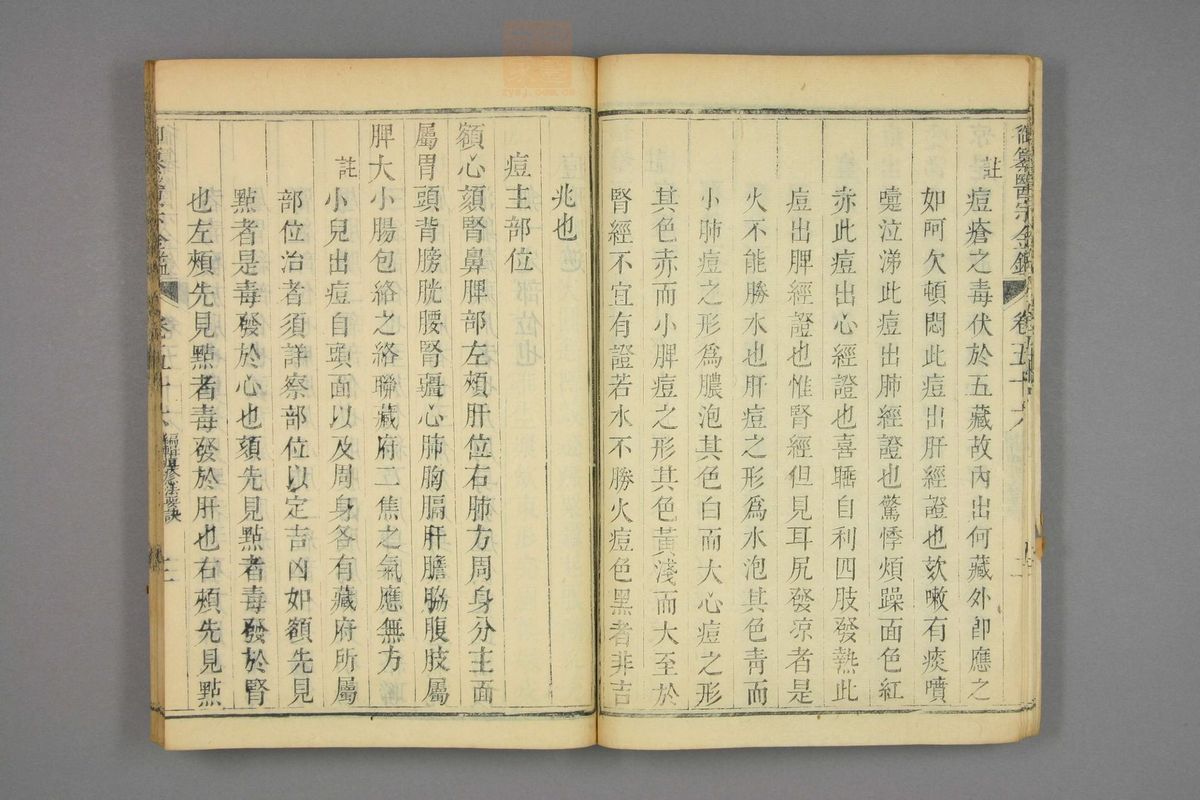 御纂醫宗金鑑 卷五十六
註 痘瘡之毒伏於五藏故內出何藏外卽應之
如呵欠頓悶此痘出肝經證也欬嗽有痰噴
嚏泣涕此痘出肺經證也驚悸煩躁面色紅
赤此痘出心經證也喜睡自利四肢發熱此
痘出脾經證也惟腎經但見耳尻發凉者是
火不能勝水也肝痘之形爲水泡其色青而
小肺痘之形爲膿泡其色白而大心痘之形
其色赤而小脾痘之形其色黃淺而大至於
腎經不宜有證若水不勝火痘色黑者非吉
兆也
痘主部位
額心頦腎鼻脾部左頰肝位右肺方周身分主面
屬胃頭背膀胱腰腎疆心肺胸膈肝膽脇腹肢屬
脾大小腸包絡之絡聯藏府三焦之氣應無方
註 小兒出痘自頭面以及周身各有藏府所屬
部位治者須詳察部位以定吉凶如額先見
點者是毒發於心也頦先見點者毒發於腎
也左頰先見點者毒發於肝也右頰先見點
御纂醫宗金鑑 卷五十六